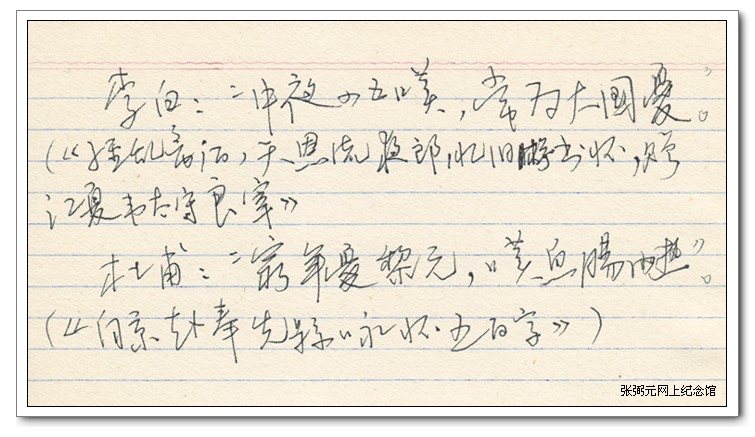 李白："中夜四五嘆，常为大國憂"。
(《经乱离后，天恩流夜郎，忆旧游书怀，赠
江夏韦太守良宰》
杜甫："窮年憂黎元，嘆息腸内热"。
(《自京赴奉先县咏怀五百字》)
张弼元网上纪念馆